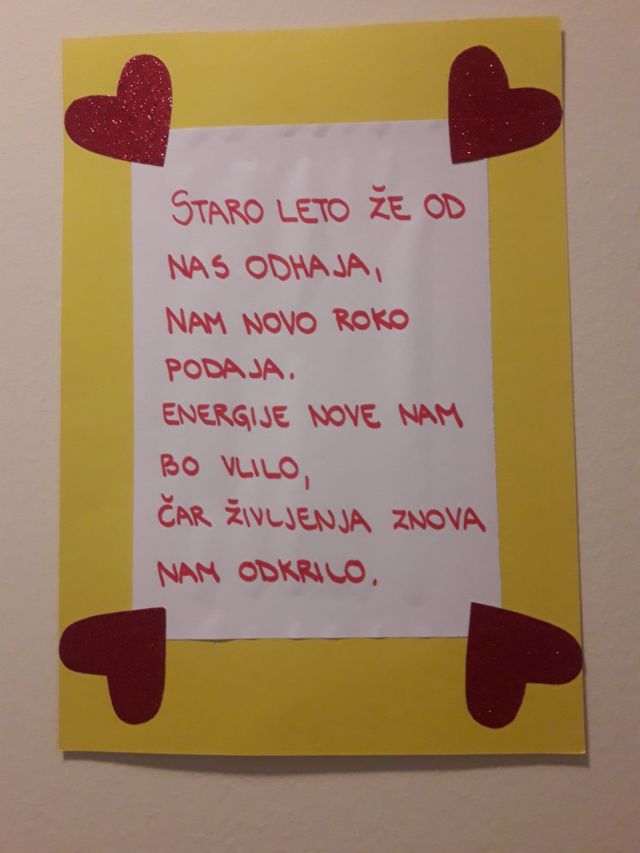 STARO LETO ŽE OD
NAS ODHAJA,
NAM NOVO ROKO
PODAJA.
ENERGIJE NOVE NAM
BO VLILO,
ČAR ŽIVLJENJA ZNOVA
NAM ODKRILO.